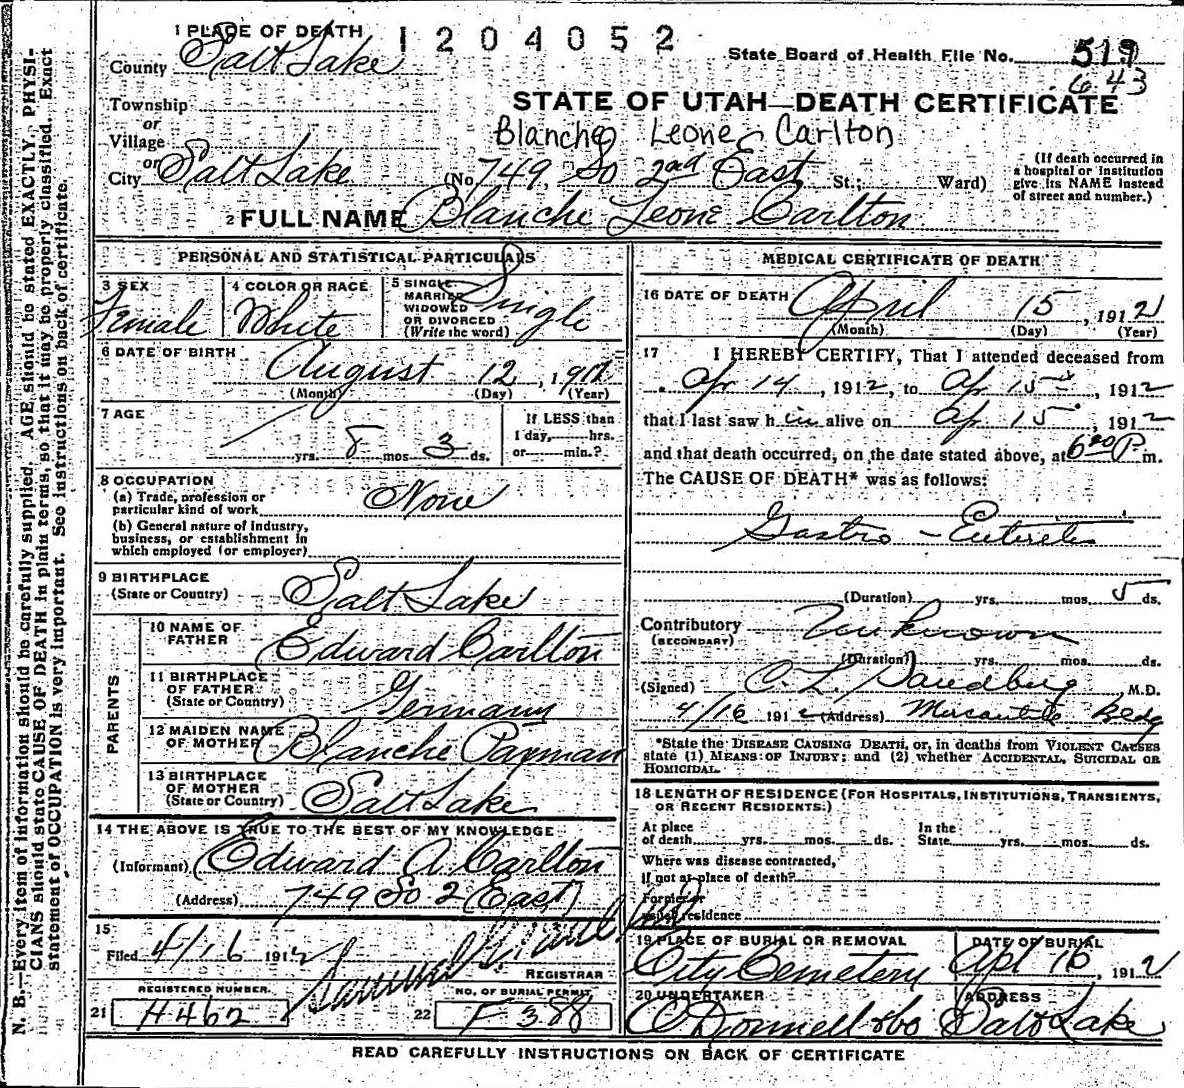 N. B.—Every item of information should be carefully supplied. AGE should be stated EXACTLY. PHYSI-
CIANS should state CAUSE OF DEATH in plain terms, so that it may be properly classified. Exact
statement of OCCUPATION is very important. See instructions on back of certificate.
1 PLACE OF DEATH
1204052
County Salt Lake
State Board of Health File No. 519
643
Township
or
Village
or
City Salt Lake
STATE OF UTAH—DEATH CERTIFICATE
Blanche Leone Carlton
(No. 749 So 2nd East St.; Ward)
(If death occurred in
a hospital or institution
give its NAME instead
of street and number.)
2 FULL NAME Blanche Leone Carlton
PERSONAL AND STATISTICAL PARTICULARS
3 SEX
Female
4 COLOR OR RACE
White
5 SINGLE
MARRIED
WIDOWED
OR DIVORCED
(Write the word)
Single
6 DATE OF BIRTH
August 12, 191
(Month) (Day) (Year)
7 AGE
yrs. 8 mos. 3 ds.
If LESS than
1 day, hrs.
or min.?
8 OCCUPATION
(a) Trade, profession or
particular kind of work None
(b) General nature of industry,
business, or establishment in
which employed (or employer)
9 BIRTHPLACE
(State or Country) Salt Lake
PARENTS
10 NAME OF
FATHER Edward Carlton
11 BIRTHPLACE
OF FATHER
(State or Country) Germany
12 MAIDEN NAME
OF MOTHER Blanche Payman
13 BIRTHPLACE
OF MOTHER
(State or Country) Salt Lake
14 THE ABOVE IS TRUE TO THE BEST OF MY KNOWLEDGE
(Informant) Edward A. Carlton
(Address) 749 So 2 East
15
Filed 4/16 1912
REGISTRAR
REGISTERED NUMBER.
21 H462
NO. OF BURIAL PERMIT
22 F 388
MEDICAL CERTIFICATE OF DEATH
16 DATE OF DEATH April 15, 1912
(Month) (Day) (Year)
17 I HEREBY CERTIFY, That I attended deceased from
Apr 14, 1912, to Ap 15, 1912
that I last saw h im alive on Ap 15, 1912
and that death occurred, on the date stated above, at 6 00 P. m.
The CAUSE OF DEATH* was as follows:
Gastro-Enteritis
(Duration) yrs. mos. 5 ds.
Contributory Unknown
(SECONDARY)
(Duration) yrs. mos. ds.
(Signed) C. L. Sandberg M.D.
4/16 1912 (Address) Mercantile Bldg
*State the DISEASE CAUSING DEATH, or, in deaths from VIOLENT CAUSES
state (1) MEANS OF INJURY; and (2) whether ACCIDENTAL, SUICIDAL OR
HOMICIDAL.
18 LENGTH OF RESIDENCE (FOR HOSPITALS, INSTITUTIONS, TRANSIENTS,
OR RECENT RESIDENTS.)
At place
of death yrs. mos. ds.
In the
State yrs. mos. ds.
Where was disease contracted,
if not at place of death?
Former or
usual residence
19 PLACE OF BURIAL OR REMOVAL
City Cemetery
DATE OF BURIAL
Apl 16, 1912
20 UNDERTAKER
O'Donnell & Co
ADDRESS
Salt Lake
READ CAREFULLY INSTRUCTIONS ON BACK OF CERTIFICATE